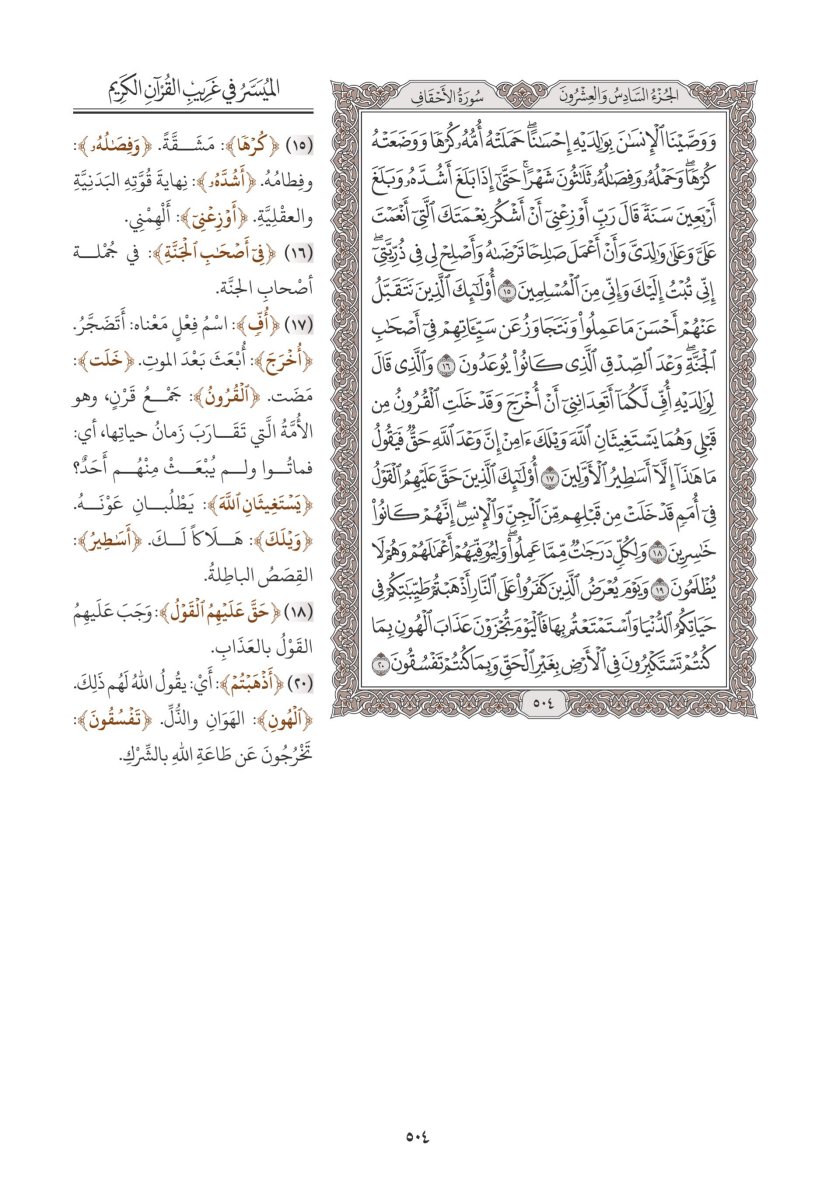 الجُزْءُ السَّادِسُ وَالعِشْرُونَ
سُورَةُ الأَحْقَافِ
وَوَصَّيْنَا ٱلْإِنسَٰنَ بِوَٰلِدَيْهِ إِحْسَٰنًاۖ حَمَلَتْهُ أُمُّهُۥ كُرْهًا وَوَضَعَتْهُ
كُرْهًاۖ وَحَمْلُهُۥ وَفِصَٰلُهُۥ ثَلَٰثُونَ شَهْرًاۚ حَتَّىٰٓ إِذَا بَلَغَ أَشُدَّهُۥ وَبَلَغَ
أَرْبَعِينَ سَنَةً قَالَ رَبِّ أَوْزِعْنِىٓ أَنْ أَشْكُرَ نِعْمَتَكَ ٱلَّتِىٓ أَنْعَمْتَ
عَلَىَّ وَعَلَىٰ وَٰلِدَىَّ وَأَنْ أَعْمَلَ صَٰلِحًا تَرْضَىٰهُ وَأَصْلِحْ لِى فِى ذُرِّيَّتِىٓۖ
إِنِّى تُبْتُ إِلَيْكَ وَإِنِّى مِنَ ٱلْمُسْلِمِينَ ١٥ أُو۟لَٰٓئِكَ ٱلَّذِينَ نَتَقَبَّلُ
عَنْهُمْ أَحْسَنَ مَا عَمِلُوا۟ وَنَتَجَاوَزُ عَن سَيِّـَٔاتِهِمْ فِىٓ أَصْحَٰبِ
ٱلْجَنَّةِۖ وَعْدَ ٱلصِّدْقِ ٱلَّذِى كَانُوا۟ يُوعَدُونَ ١٦ وَٱلَّذِى قَالَ
لِوَٰلِدَيْهِ أُفٍّ لَّكُمَآ أَتَعِدَانِنِىٓ أَنْ أُخْرَجَ وَقَدْ خَلَتِ ٱلْقُرُونُ مِن
قَبْلِى وَهُمَا يَسْتَغِيثَانِ ٱللَّهَ وَيْلَكَ ءَامِنْ إِنَّ وَعْدَ ٱللَّهِ حَقٌّ فَيَقُولُ
مَا هَٰذَآ إِلَّآ أَسَٰطِيرُ ٱلْأَوَّلِينَ ١٧ أُو۟لَٰٓئِكَ ٱلَّذِينَ حَقَّ عَلَيْهِمُ ٱلْقَوْلُ
فِىٓ أُمَمٍ قَدْ خَلَتْ مِن قَبْلِهِم مِّنَ ٱلْجِنِّ وَٱلْإِنسِۖ إِنَّهُمْ كَانُوا۟
خَٰسِرِينَ ١٨ وَلِكُلٍّ دَرَجَٰتٌ مِّمَّا عَمِلُوا۟ۖ وَلِيُوَفِّيَهُمْ أَعْمَٰلَهُمْ وَهُمْ لَا
يُظْلَمُونَ ١٩ وَيَوْمَ يُعْرَضُ ٱلَّذِينَ كَفَرُوا۟ عَلَى ٱلنَّارِ أَذْهَبْتُمْ طَيِّبَٰتِكُمْ فِى
حَيَاتِكُمُ ٱلدُّنْيَا وَٱسْتَمْتَعْتُم بِهَا فَٱلْيَوْمَ تُجْزَوْنَ عَذَابَ ٱلْهُونِ بِمَا
كُنتُمْ تَسْتَكْبِرُونَ فِى ٱلْأَرْضِ بِغَيْرِ ٱلْحَقِّ وَبِمَا كُنتُمْ تَفْسُقُونَ ٢٠
٥٠٤
المُيَسَّرُ في غَرِيبِ القُرْآنِ الكَرِيمِ
(١٥) ﴿كُرْهًا﴾: مَشَقَّةً. ﴿وَفِصَٰلُهُۥ﴾:
وفِطامُهُ. ﴿أَشُدَّهُۥ﴾: نِهايةَ قُوَّتِهِ البَدَنِيَّةِ
والعقْلِيَّةِ. ﴿أَوْزِعْنِىٓ﴾: أَلْهِمْنِي.
(١٦) ﴿فِىٓ أَصْحَٰبِ ٱلْجَنَّةِ﴾: في جُمْلة
أصْحابِ الجنَّة.
(١٧) ﴿أُفٍّ﴾: اسْمُ فِعْلٍ مَعْناه: أَتَضَجَّرُ.
﴿أُخْرَجَ﴾: أُبْعَثَ بَعْدَ الموتِ. ﴿خَلَتِ﴾:
مَضَت. ﴿ٱلْقُرُونُ﴾: جَمْعُ قَرْنٍ، وهو
الأُمَّةُ الَّتي تَقَارَبَ زَمانُ حياتِها، أي:
فماتُوا ولم يُبْعَثْ مِنْهُم أَحَدٌ؟
﴿يَسْتَغِيثَانِ ٱللَّهَ﴾: يَطْلُبانِ عَوْنَهُ.
﴿وَيْلَكَ﴾: هَلَاكاً لَكَ. ﴿أَسَٰطِيرُ﴾:
القِصَصُ الباطِلةُ.
(١٨) ﴿حَقَّ عَلَيْهِمُ ٱلْقَوْلُ﴾: وَجَبَ عَلَيهِمُ
القَوْلُ بالعَذَابِ.
(٢٠) ﴿أَذْهَبْتُمْ﴾: أَيْ: يقُولُ اللهُ لَهُم ذَلِكَ.
﴿ٱلْهُونِ﴾: الهَوَانِ والذُّلِّ. ﴿تَفْسُقُونَ﴾:
تَخْرُجُونَ عَن طَاعَةِ اللهِ بالشِّرْكِ.
٥٠٤